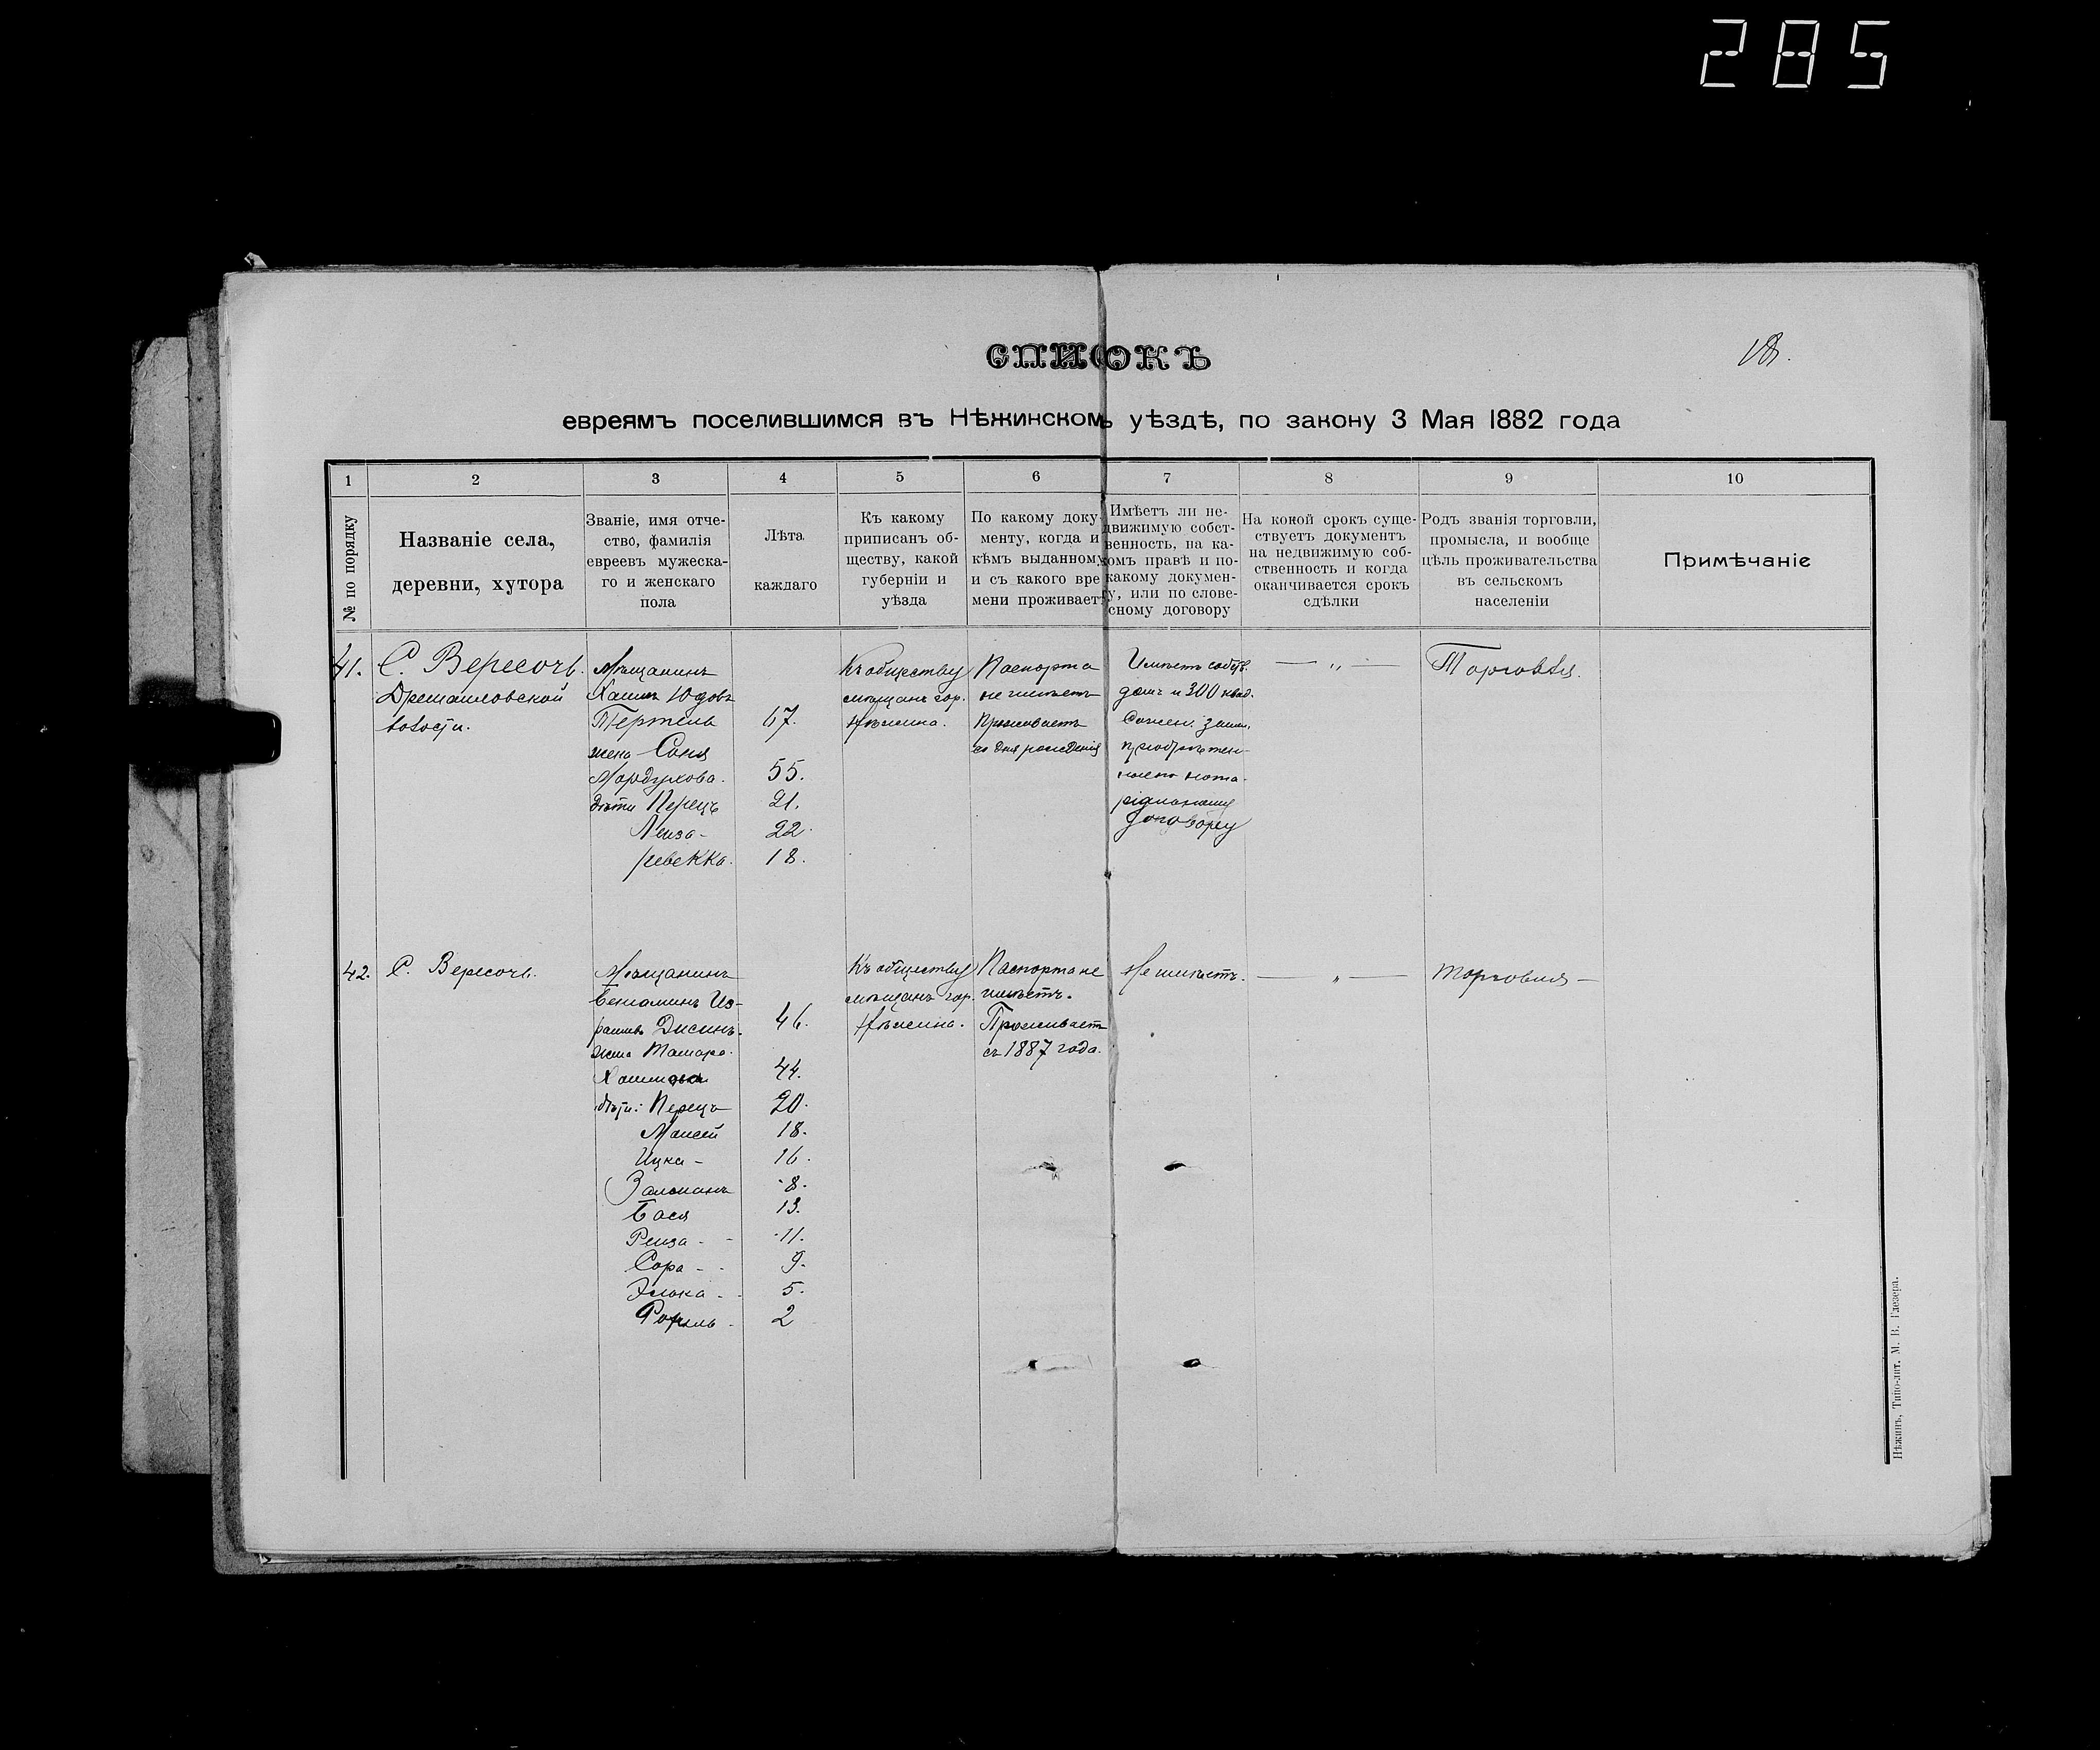 285
18.
СПИСОКЪ
евреямъ поселившимся въ Нѣжинскомъ уѣздѣ, по закону 3 Мая 1882 года
1 2 3 4 5 6 7 8 9 10
№ по порядку
Названіе села,
деревни, хутора
Званіе, имя отче-
ство, фамилія
евреевъ мужеска-
го и женскаго
пола
Лѣта
каждаго
Къ какому
приписанъ об-
ществу, какой
губерніи и
уѣзда
По какому доку-
менту, когда и
кѣмъ выданному
и съ какого вре
мени проживаетъ
Имѣетъ ли не-
движимую собст-
венность, на ка-
комъ правѣ и по-
какому докумен-
ту, или по слове-
сному договору
На коной срокъ суще-
ствуетъ документъ
на недвижимую соб-
ственность и когда
оканчивается срокъ
сдѣлки
Родъ званія торговли,
промысла, и вообще
цѣль проживательства
въ сельскомъ
населеніи
Примѣчаніе
41.
С. Вересочь.
Дремайловской
волости.
Мѣщанинъ
Хаимъ Юдовъ
Пертель 67.
жена Соня
Мордухова. 55.
дѣти Перецъ 21.
Лейза - 22.
Ревекка. 18.
Къ обществу
мѣщанъ гор.
Нѣжина.
Паспорта
не имѣетъ
Проживаетъ
со дня рожденія
Имѣетъ собств.
домъ и 300 квад.
Сажен. земли,
пріобрѣтен-
ное по нота-
ріальному
договору
— „ —
Торговля.
42.
С. Вересочь.
Мѣщанинъ
Беніаминъ Из-
раилевъ Дисинъ. 46.
жена Тамара
Хаимова 44.
дѣти: Перецъ 20.
Моисей 18.
Ицка - 16.
Залманъ 8.
Бася 13.
Рейза - - 11.
Сора - - 9.
Элька - - 5.
2
Къ обществу
мѣщанъ гор.
Нѣжина.
Паспорта не
имѣетъ.
Проживаетъ
съ 1887 года.
Не имѣетъ.
— „ —
Торговля —
Нѣжинъ, Типо-лит. М. В. Глезера.